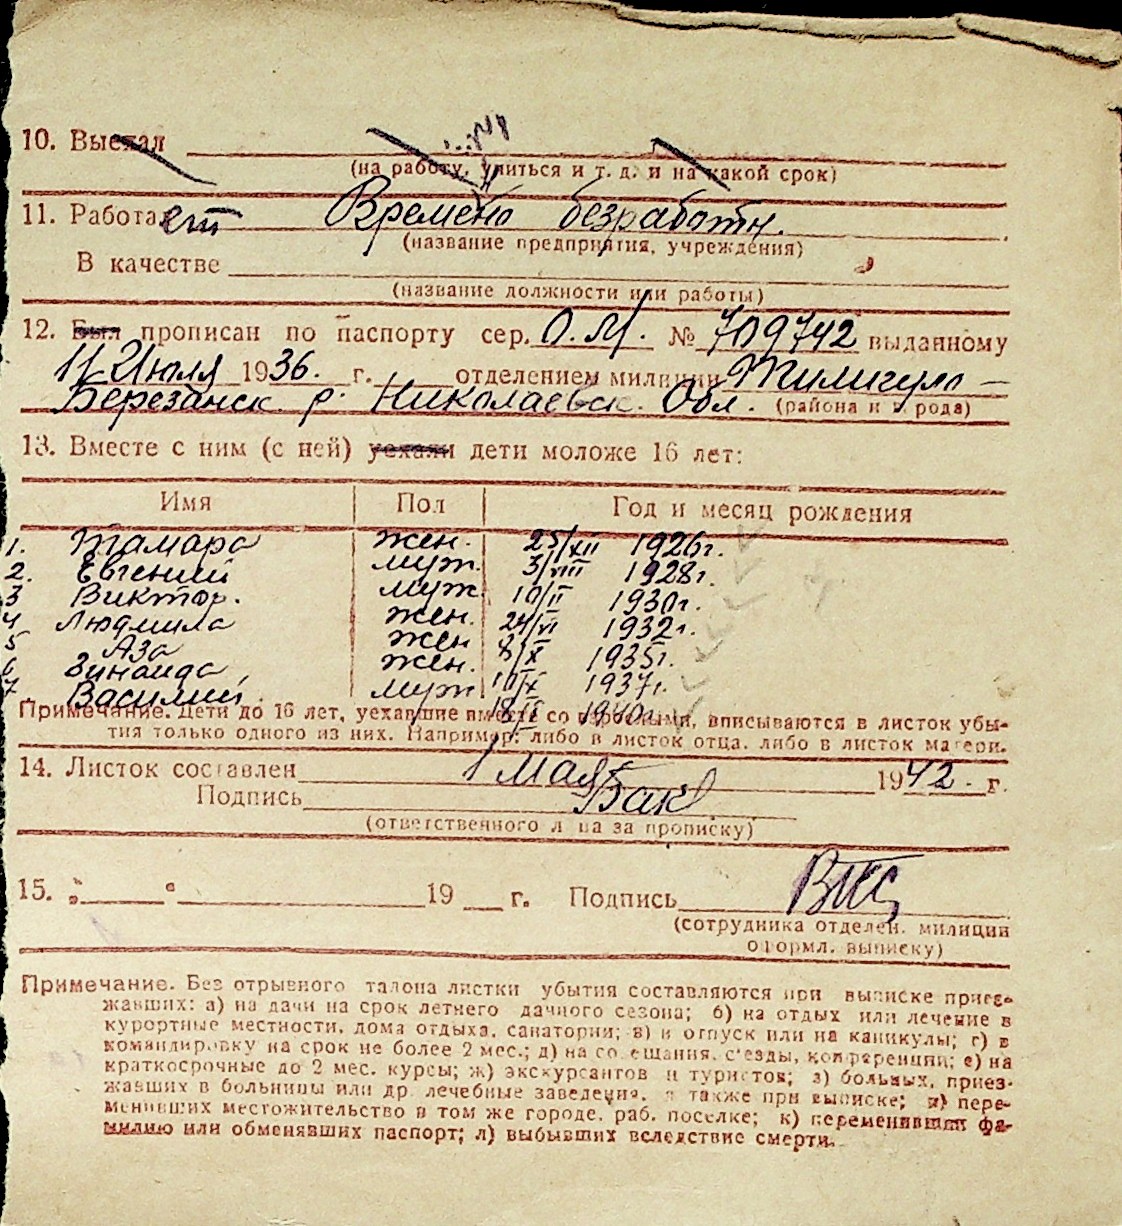 10. Выехал
(на работу, учиться и т. д. и на какой срок)
11. Работает Времено безработн.
(название предприятия, учреждения)
В качестве
(название должности или работы)
12. Был прописан по паспорту сер. О.М. № 709742 выданному
11 Июля 1936. г. отделением милиции Тилигуло-
Березанск. р. Николаевск. Обл. (района и города)
13. Вместе с ним (с ней) уехали дети моложе 16 лет:
Имя Пол Год и месяц рождения
1. Тамара жен. 25/XII 1926г.
2. Евгений муж. 3/VIII 1928г.
3 Виктор. муж 10/II 1930г.
4 Людмила жен. 24/VI 1932г.
5 Аза жен 8/X 1935г.
6 Зинаида жен. 10/X 1937г.
7 Василий муж. 18/II 1940г.
Примечание. Дети до 16 лет, уехавшие вместе со взрослыми, вписываются в листок убы-
тия только одного из них. Например: либо в листок отца, либо в листок матери.
14. Листок составлен 1 Мая 1942. г.
Подпись Бак
(ответственного лица за прописку)
15. „ “ 19 г. Подпись
(сотрудника отделен. милиции
оформл. выписку)
Примечание. Без отрывного талона листки убытия составляются при выписке приез-
жавших: а) на дачи на срок летнего дачного сезона; б) на отдых или лечение в
курортные местности, дома отдыха, санатории; в) в отпуск или на каникулы; г) в
командировку на срок не более 2 мес.; д) на совещания, съезды, конференции; е) на
краткосрочные до 2 мес. курсы; ж) экскурсантов и туристов; з) больных, приез-
жавших в больницы или др. лечебные заведения, а также при выписке; и) пере-
менивших местожительство в том же городе, раб. поселке; к) переменивших фа-
милию или обменявших паспорт; л) выбывших вследствие смерти.